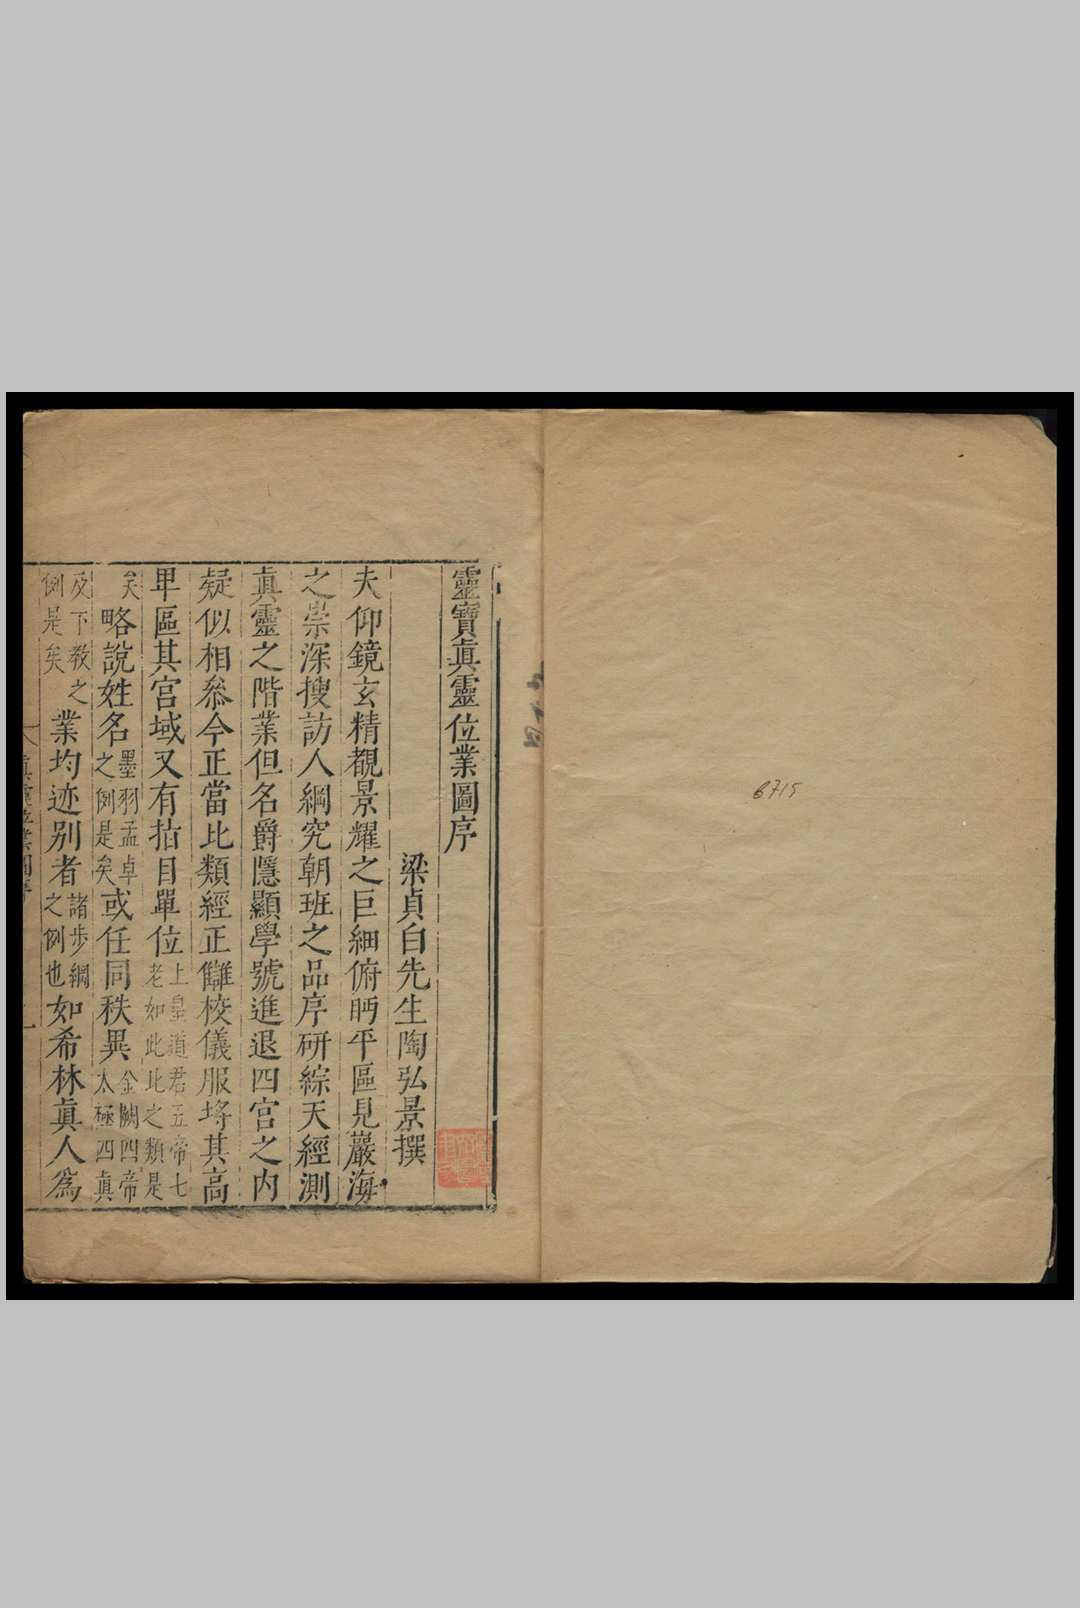 靈寶眞靈位業圖序
梁貞白先生陶弘景撰
夫仰鏡玄精覩景耀之巨細俯眄平區見巖海
之崇深搜訪人綱究朝班之品序研綜天經測
眞靈之階業但名爵隱顯學號進退四宮之内
疑似相叅今正當比類經正讎校儀服埓其高
卑區其宮域又有指目單位上皇道君五帝七老如此比之類是
矣略說姓名墨羽孟卓之例是矣或任同秩異金闕四帝太極四眞
及下教之例是矣業均迹别者諸步綱之例也如希林眞人爲
6715